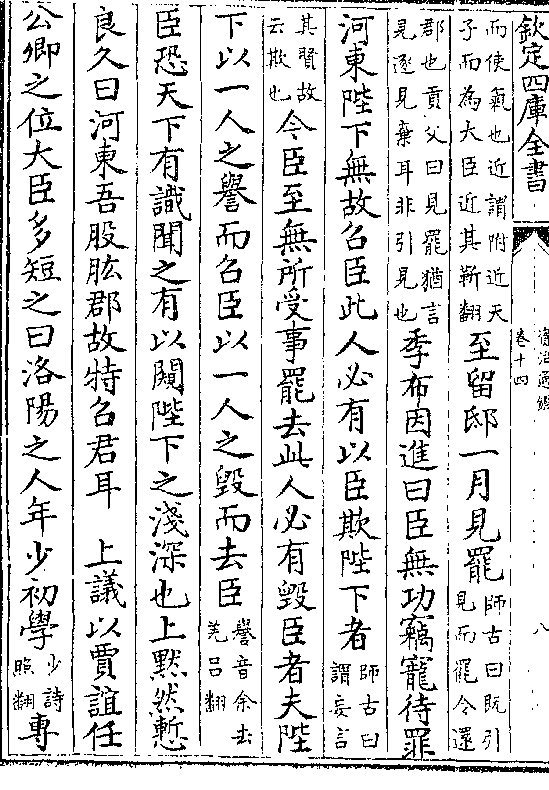 欽定四庫全書
資治通鑑
卷十四
八
而使氣也近謂附近天
子而為大臣近其靳翻
至留邸一月見罷
師古曰既引
見而罷令還
郡也貢父曰見罷猶言
見逐見棄耳非引見也
季布因進曰臣無功竊寵待罪
河東陛下無故召臣此人必有以臣欺陛下者
師古曰
謂妄言
其賢故
云欺也
今臣至無所受事罷去此人必有毀臣者夫陛
下以一人之譽而召臣以一人之毀而去臣
譽音余去
羌呂翻
臣恐天下有識聞之有以闚陛下之淺深也上默然慙
良久曰河東吾股肱郡故特召君耳　上議以賈誼任
公卿之位大臣多短之曰洛陽之人年少初學
少詩
照翻
專